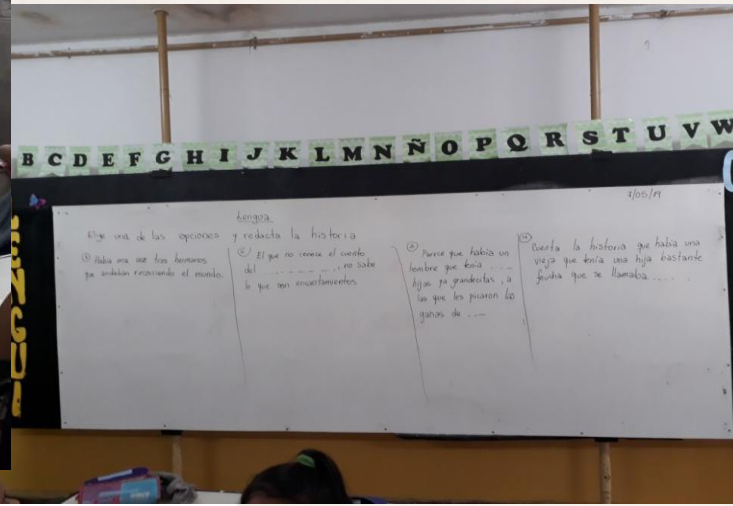 B C D E F G H I J K L M N Ñ O P Q R S T U V W
7/05/19
Lengua
Elige una de las opciones y redacta la historia
① Había una vez tres hermanos
que andaban recorriendo el mundo.
② El que no conoce el cuento
del _ _ _ _ _ _ _, no sabe
lo que son encantamientos
③ Parece que había un
hombre que tenía _ _ _ _
hijas ya grandecitas, a
las que les picaron las
ganas de _ _ _
④ Cuenta la historia que había una
vieja que tenía una hija bastante
feucha que se llamaba . . . .
ENGUA